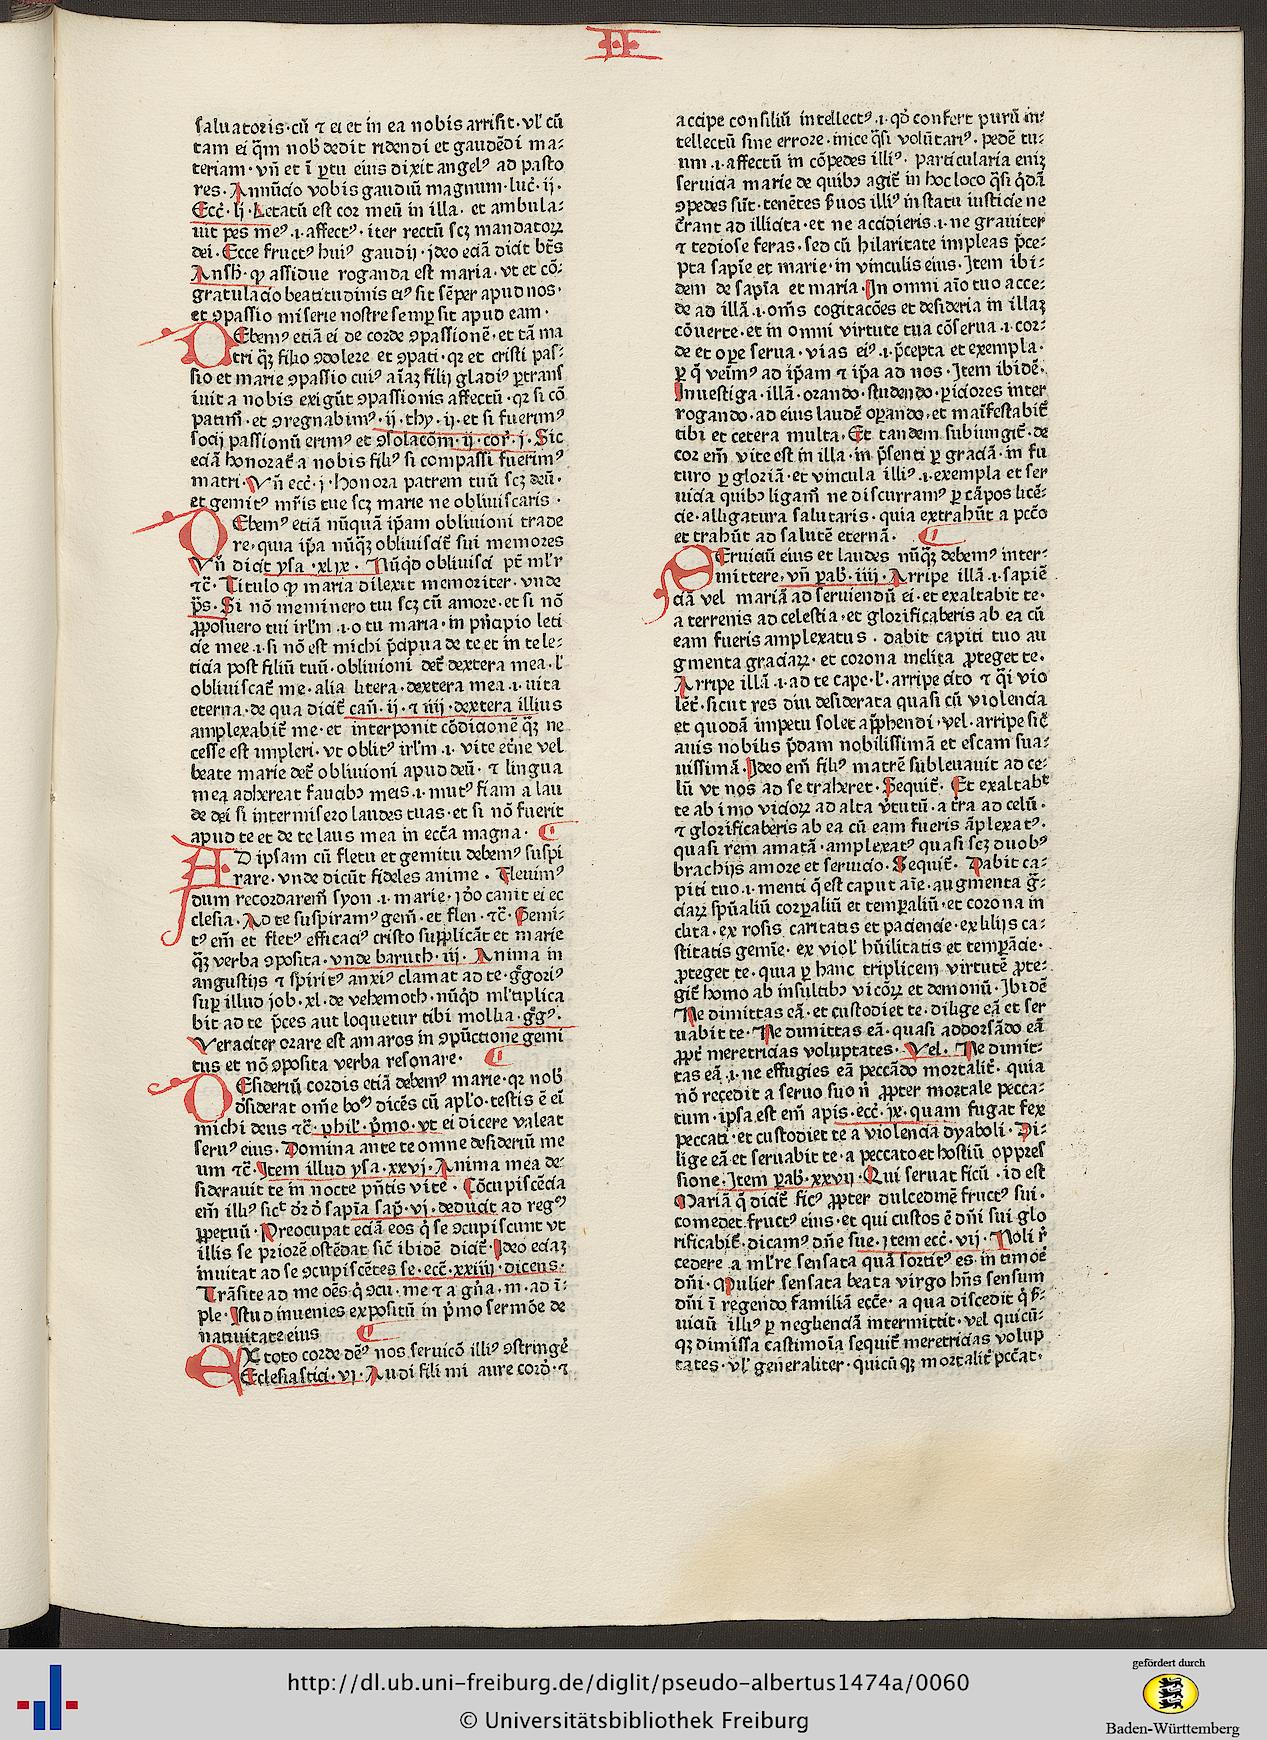 II
saluatoris·cū ⁊ ei et in ea nobis arrisit·vl' cū
tam ei q̄m nob' dedit ridendi et gaudēdi ma⸗
teriam·vñ et ī ꝑtu eius dixit angelꝰ ad pasto
res·Annūcio vobis gaudiū magnum·luc̄·ij·
Ecc̄·lj·Letatū est cor meū in illa·et ambula⸗
uit pes meꝰ·.i.affectꝰ·iter rectū scꝫ mandatoꝝ
dei·Ecce fructꝰ huiꝰ gaudij·ideo eciā dicit bt̄s
Ansh̄·ꝙ assidue roganda est maria·vt et cō⸗
gratulacio beatitudinis eiꝰ sit sēper apud nos·
et ꝯpassio miserie nostre semꝑ sit apud eam·
DEbemꝰ etiā ei de corde ꝯpassionē·et tā ma
tri qꝫ filio ꝯdolere et ꝯpati·qꝛ et cristi pas⸗
sio et marie ꝯpassio cuiꝰ aīaꝫ filij gladiꝰ ꝑtrans
iuit a nobis exigūt ꝯpassionis affectū·qꝛ si cō
patim̄·et ꝯregnabimꝰ·ij·thy·ij·et si fuerimꝰ
socij passionū erimꝰ et ꝯsolacōm·ij·cor̄·j·Sic
eciā honorat̄ a nobis filiꝰ si compassi fuerimꝰ
matri·Vñ ecc̄·j·honora patrem tuū scꝫ deū·
et gemitꝰ mr̄is tue scꝫ marie ne obliuiscaris·
DEbemꝰ etiā nūquā ip̄am obliuioni trade
re·quia ip̄a nūqꝫ obliuiscit̄ sui memores
Vñ dicit ysa·xlix·Nūqd obliuisci pt̄ ml'r
⁊c̄·Titulo ꝙ maria dilexit memoriter·vnde
p̄s·Si nō meminero tui scꝫ cū amore·et si nō
ꝓposuero tui irl'm·.i.o tu maria·in pn̄cipio leti
cie mee·.i.si nō est michi p̄cipua de te et in te le⸗
ticia post filiū tuū·obliuioni det̄ dextera mea·l'
obliuiscat̄ me·alia litera·dextera mea·.i.uita
eterna·de qua dicit̄ can̄·ij·⁊ iiij·dextera illius
amplexabit̄ me·et interponit cōdicionē qꝫ ne
cesse est impleri·vt oblitꝰ irl'm·.i.vite et̄ne vel
beate marie det̄ obliuioni apud deū·⁊ lingua
mea adhereat faucibꝰ meis·.i.mutꝰ fiam a lau
de dei si intermisero laudes tuas·et si nō fuerit
apud te et de te laus mea in ecc̄a magna·
AD ipsam cū fletu et gemitu debemꝰ suspi
rare·vnde dicūt fideles anime·Fleuimꝰ
dum recordarem̄ syon·.i.marie·ido canit ei ec
clesia·Ad te suspiramꝰ gem̄·et flen·⁊c̄·Gemi⸗
tꝰ em̄ et fletꝰ efficaciꝰ cristo supplicāt et marie
qꝫ verba ꝯposita·vnde baruch·iij·Anima in
angustijs ⁊ spiritꝰ anxiꝰ clamat ad te·g̊goriꝰ
suꝑ illud job·xl·de vehemoth·nūqd ml'tiplica
bit ad te p̄ces aut loquetur tibi mollia·g̊gꝰ·
Veraciter orare est amaros in ꝯpūctione gemi
tus et nō ꝯposita verba resonare·
DEsideriū cordis etiā debemꝰ marie·qꝛ nob'
d̄siderat om̄e boꝰ dicēs cū apl'o·testis ē ei
michi deus ⁊c̄·phil'·p̄mo·vt ei dicere valeat
seruꝰ eius·Domina ante te omne desideriū me
um ⁊c̄·Item illud ysa·xxvj·Anima mea de⸗
siderauit te in nocte pn̄tis vite·Cōcupiscēcia
em̄ illiꝰ sic̄ dr̄ d̄ sapīa sap̄·vj·deducit ad regꝰ
ꝑpetuū·Preocupat eciā eos q̄ se ꝯcupiscunt vt
illis se priorē ostēdat sic̄ ibidē dicit̄·Ideo eciaꝫ
inuitat ad se ꝯcupiscētes se·ecc̄·xxiiij·dicens·
Trāsite ad me oēs q̄ ꝯcu·me ⁊ a gn̄a·m·ad ī⸗
ple·Istud inuenies expositū in p̄mo sermōe de
natiuitate eius
EX toto corde dēꝰ nos seruicō illiꝰ ꝯstringē
Ecclesiastici·vj·Audi fili mi aure cord̄·⁊
accipe consiliū intellectꝰ·.i.qd̄ confert purū in⸗
tellectū sine errore·inice q̄si volūtariꝰ·pedē tu⸗
um·.i.affectū in cōpedes illiꝰ·particularia eniꝫ
seruicia marie de quibꝰ agit̄ in hoc loco q̄si q̄dā
ꝯpedes sūt·tenētes s̄uos illiꝰ in statu iusticie ne
c̄rant ad illicita·et ne accidieris·.i.ne grauiter
⁊ tediose feras·sed cū hilaritate impleas p̄ce⸗
pta sapīe et marie·in vinculis eius·Item ibi⸗
dem de sapīa et maria·In omni aīo tuo acce⸗
de ad illā·.i.om̄s cogitacōes et desideria in illaꝫ
cōuerte·et in omni virtute tua cōserua·.i.cor⸗
de et oꝑe serua·vias eiꝰ·.i.p̄cepta et exempla·
ꝑ q̄ veīmꝰ ad ip̄am ⁊ ip̄a ad nos·Item ibidē·
Inuestiga·illā·orando·studendo·ꝑiciores inter
rogando·ad eius laudē oꝑando·et maīfestabit̄
tibi et cetera multa·Et tandem subiungit̄·de
cor em̄ vite est in illa·in p̄senti ꝑ graciā·in fu
turo ꝑ gloriā·et vincula illiꝰ·.i.exempla et ser
uicia quibꝰ ligam̄ ne discurramꝰ ꝑ cāpos licē⸗
cie·alligatura salutaris·quia extrahūt a pcc̄o
et trahūt ad salutē eternā·
SEruiciū eius et laudes nūqꝫ debemꝰ inter⸗
mittere·vñ ꝑab·iiij·Arripe illā·.i.sapiē
ciā vel mariā ad seruiendū ei·et exaltabit te·
a terrenis ad celestia·et glorificaberis ab ea cū
eam fueris amplexatus·dabit capiti tuo au
gmenta graciaꝝ·et corona inclita ꝓteget te·
Arripe illā·.i.ad te cape·l'·arripe cito ⁊ q̄i vio
lēt̄·sicut res diu desiderata quasi cū violencia
et quodā impetu solet app̄hendi·vel·arripe sic̄
auis nobilis p̄dam nobilissimā et escam sua⸗
uissimā·Ideo em̄ filiꝰ matrē subleuauit ad ce⸗
lū vt nos ad se traheret·Sequit̄·Et exaltabt
te ab imo vicioꝝ ad alta v̄tutū·a t̄ra ad celū·
⁊ glorificaberis ab ea cū eam fueris āplexatꝰ·
quasi rem amatā·amplexatꝰ quasi scꝫ duobꝰ
brachijs amore et seruicio·Sequit̄·Dabit ca⸗
piti tuo·.i.menti q̄ est caput aīe·augmenta g̊⸗
ciaꝝ spūaliū corꝑaliū et temꝑaliū·et corona in
clita·ex rosis caritatis et paciencie·ex lilijs ca⸗
stitatis gemīe·ex viol' hūilitatis et temꝑācie·
ꝓteget te·quia ꝑ hanc triplicem virtutē ꝓte⸗
git̄ homo ab insultibꝰ vicōꝝ et demonū·Ibidē
Ne dimittas eā·et custodiet te·dilige eā et ser
uabit te·Ne dimittas eā·quasi addorsādo eā
ꝓpt̄ meretricias voluptates·Vel·Ne dimit⸗
tas eā·.i.ne effugies eā peccādo mortalit̄·quia
nō recedit a seruo suo n̄ ꝓpter mortale pecca⸗
tum·ipsa est em̄ apis·ecc̄·jx·quam fugat fex
peccati·et custodiet te a violencia dyaboli·Di⸗
lige eā et seruabit te·a peccato et hostiū oppres
sione·Item ꝑab·xxvij·Qui seruat ficū·id est
Mariā q̄ dicit̄ ficꝰ ꝓpter dulcedinē fructꝰ sui·
comedet fructꝰ eius·et qui custos ē dn̄i sui glo
rificabit̄·dicamꝰ dn̄e sue·item ecc̄·vij·Noli r̄
cedere a ml're sensata quā sortitꝰ es·in timoē
dn̄i·Mulier sensata beata virgo hn̄s sensum
dn̄i ī regendo familiā ecc̄e·a qua discedit q̄ s̄⸗
uiciū illiꝰ ꝑ negliencīā intermittit·vel quicū⸗
qꝫ dimissa castimoīa sequit̄ meretricias volup
tates·vl' generaliter·quicūqꝫ mortalit̄ pcc̄at·
http://dl.ub.uni-freiburg.de/diglit/pseudo-albertus1474a/0060
© Universitätsbibliothek Freiburg
gefördert durch
Baden-Württemberg